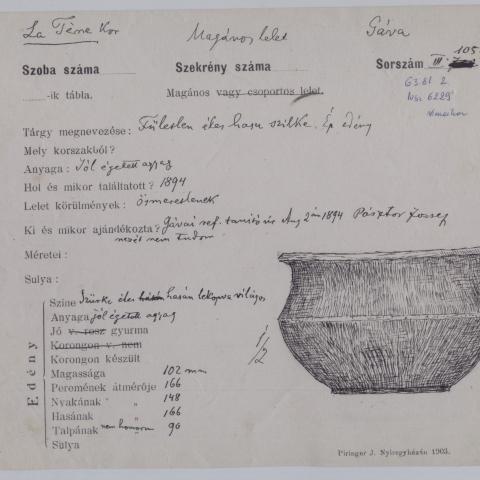 La Tène Kor Magános lelet Gáva
Szoba száma Szekrény száma Sorszám III. 105
-ik tábla. Magános vagy csoportos lelet. 63.61.2
Tárgy megnevezése: Fületlen éles hasu szilke. Ép edény
Mely korszakból?
Anyaga: Jól égetett agyag
Hol és mikor találtatott? 1894
Lelet körülmények: ösmeretlenek
Ki és mikor ajándékozta? Gávai ref. tanító úr Aug 2án 1894 Pásztor József
nevét nem tudom
Méretei:
Sulya:
Edény
Szine Szürke éles hasán lekopva világos
Anyaga jól égetett agyag
Jó v. rosz gyurma
Korongon v. nem
Korongon készült
1/2
Magassága 102 mm
Peremének átmérője 166
Nyakának " 148
Hasának " 166
Talpának nem homoru 90
Sulya
Piringer J. Nyiregyházán 1903.